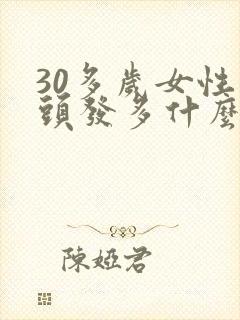 30多歲女性
頭發多什麼
陳婭君